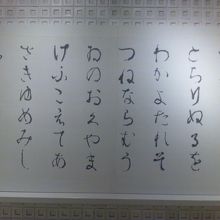 とちりぬるを
わかよたれそ
つねならむう
ゐのおくやま
けふこえてあ
さきゆめみし